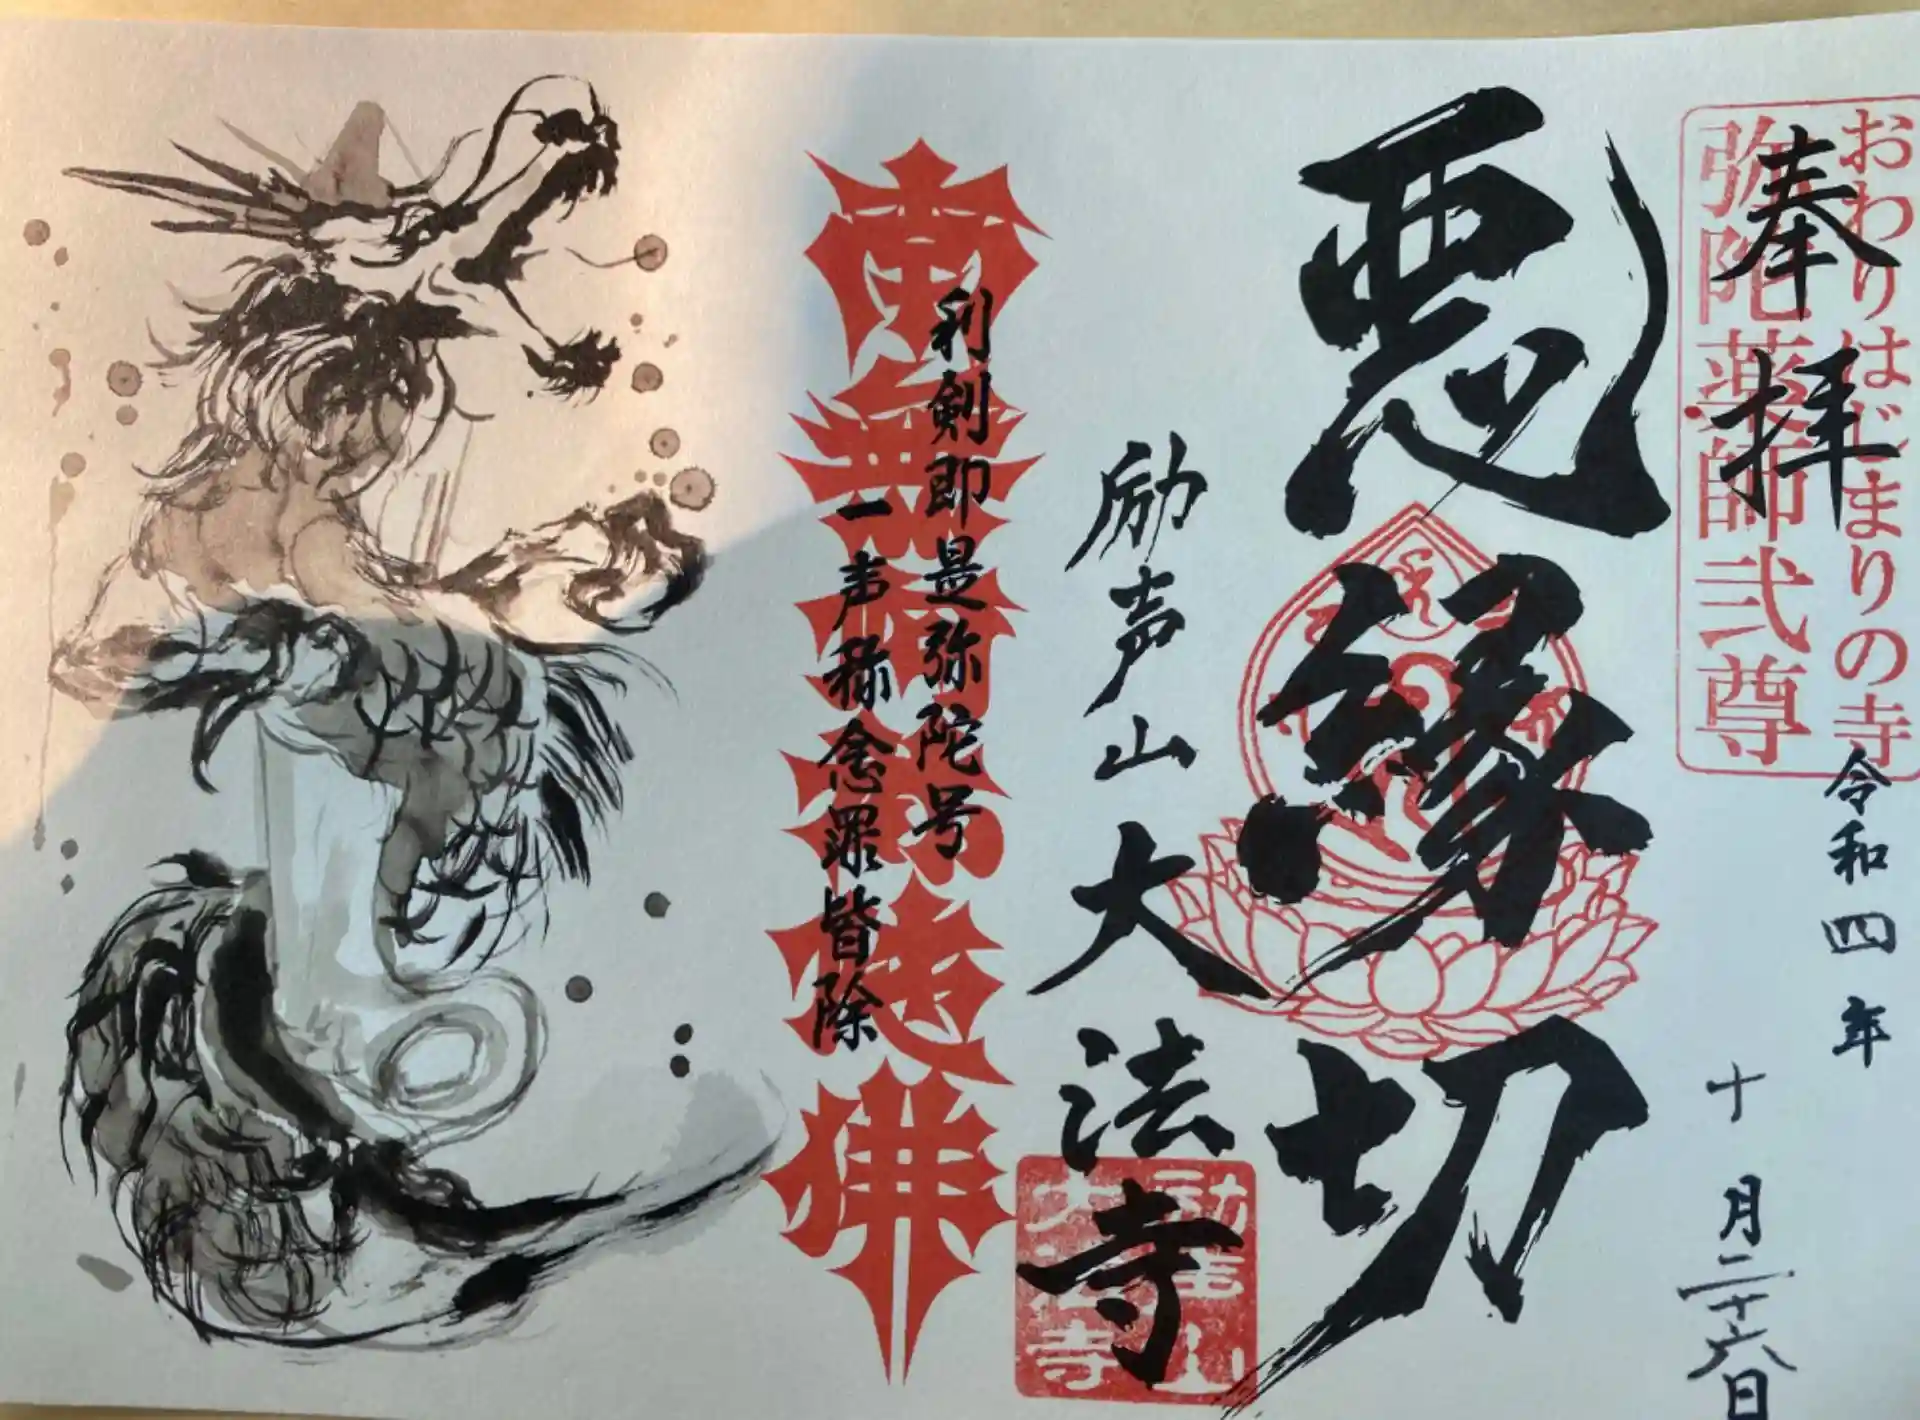 おわりはじまりの寺
弥陀薬師弐尊
奉拝
令和四年
十月二十六日
悪縁切
励声山大法寺
励声山
大法寺
利剣即是弥陀号
一声称念罪皆除
南無阿弥陀佛